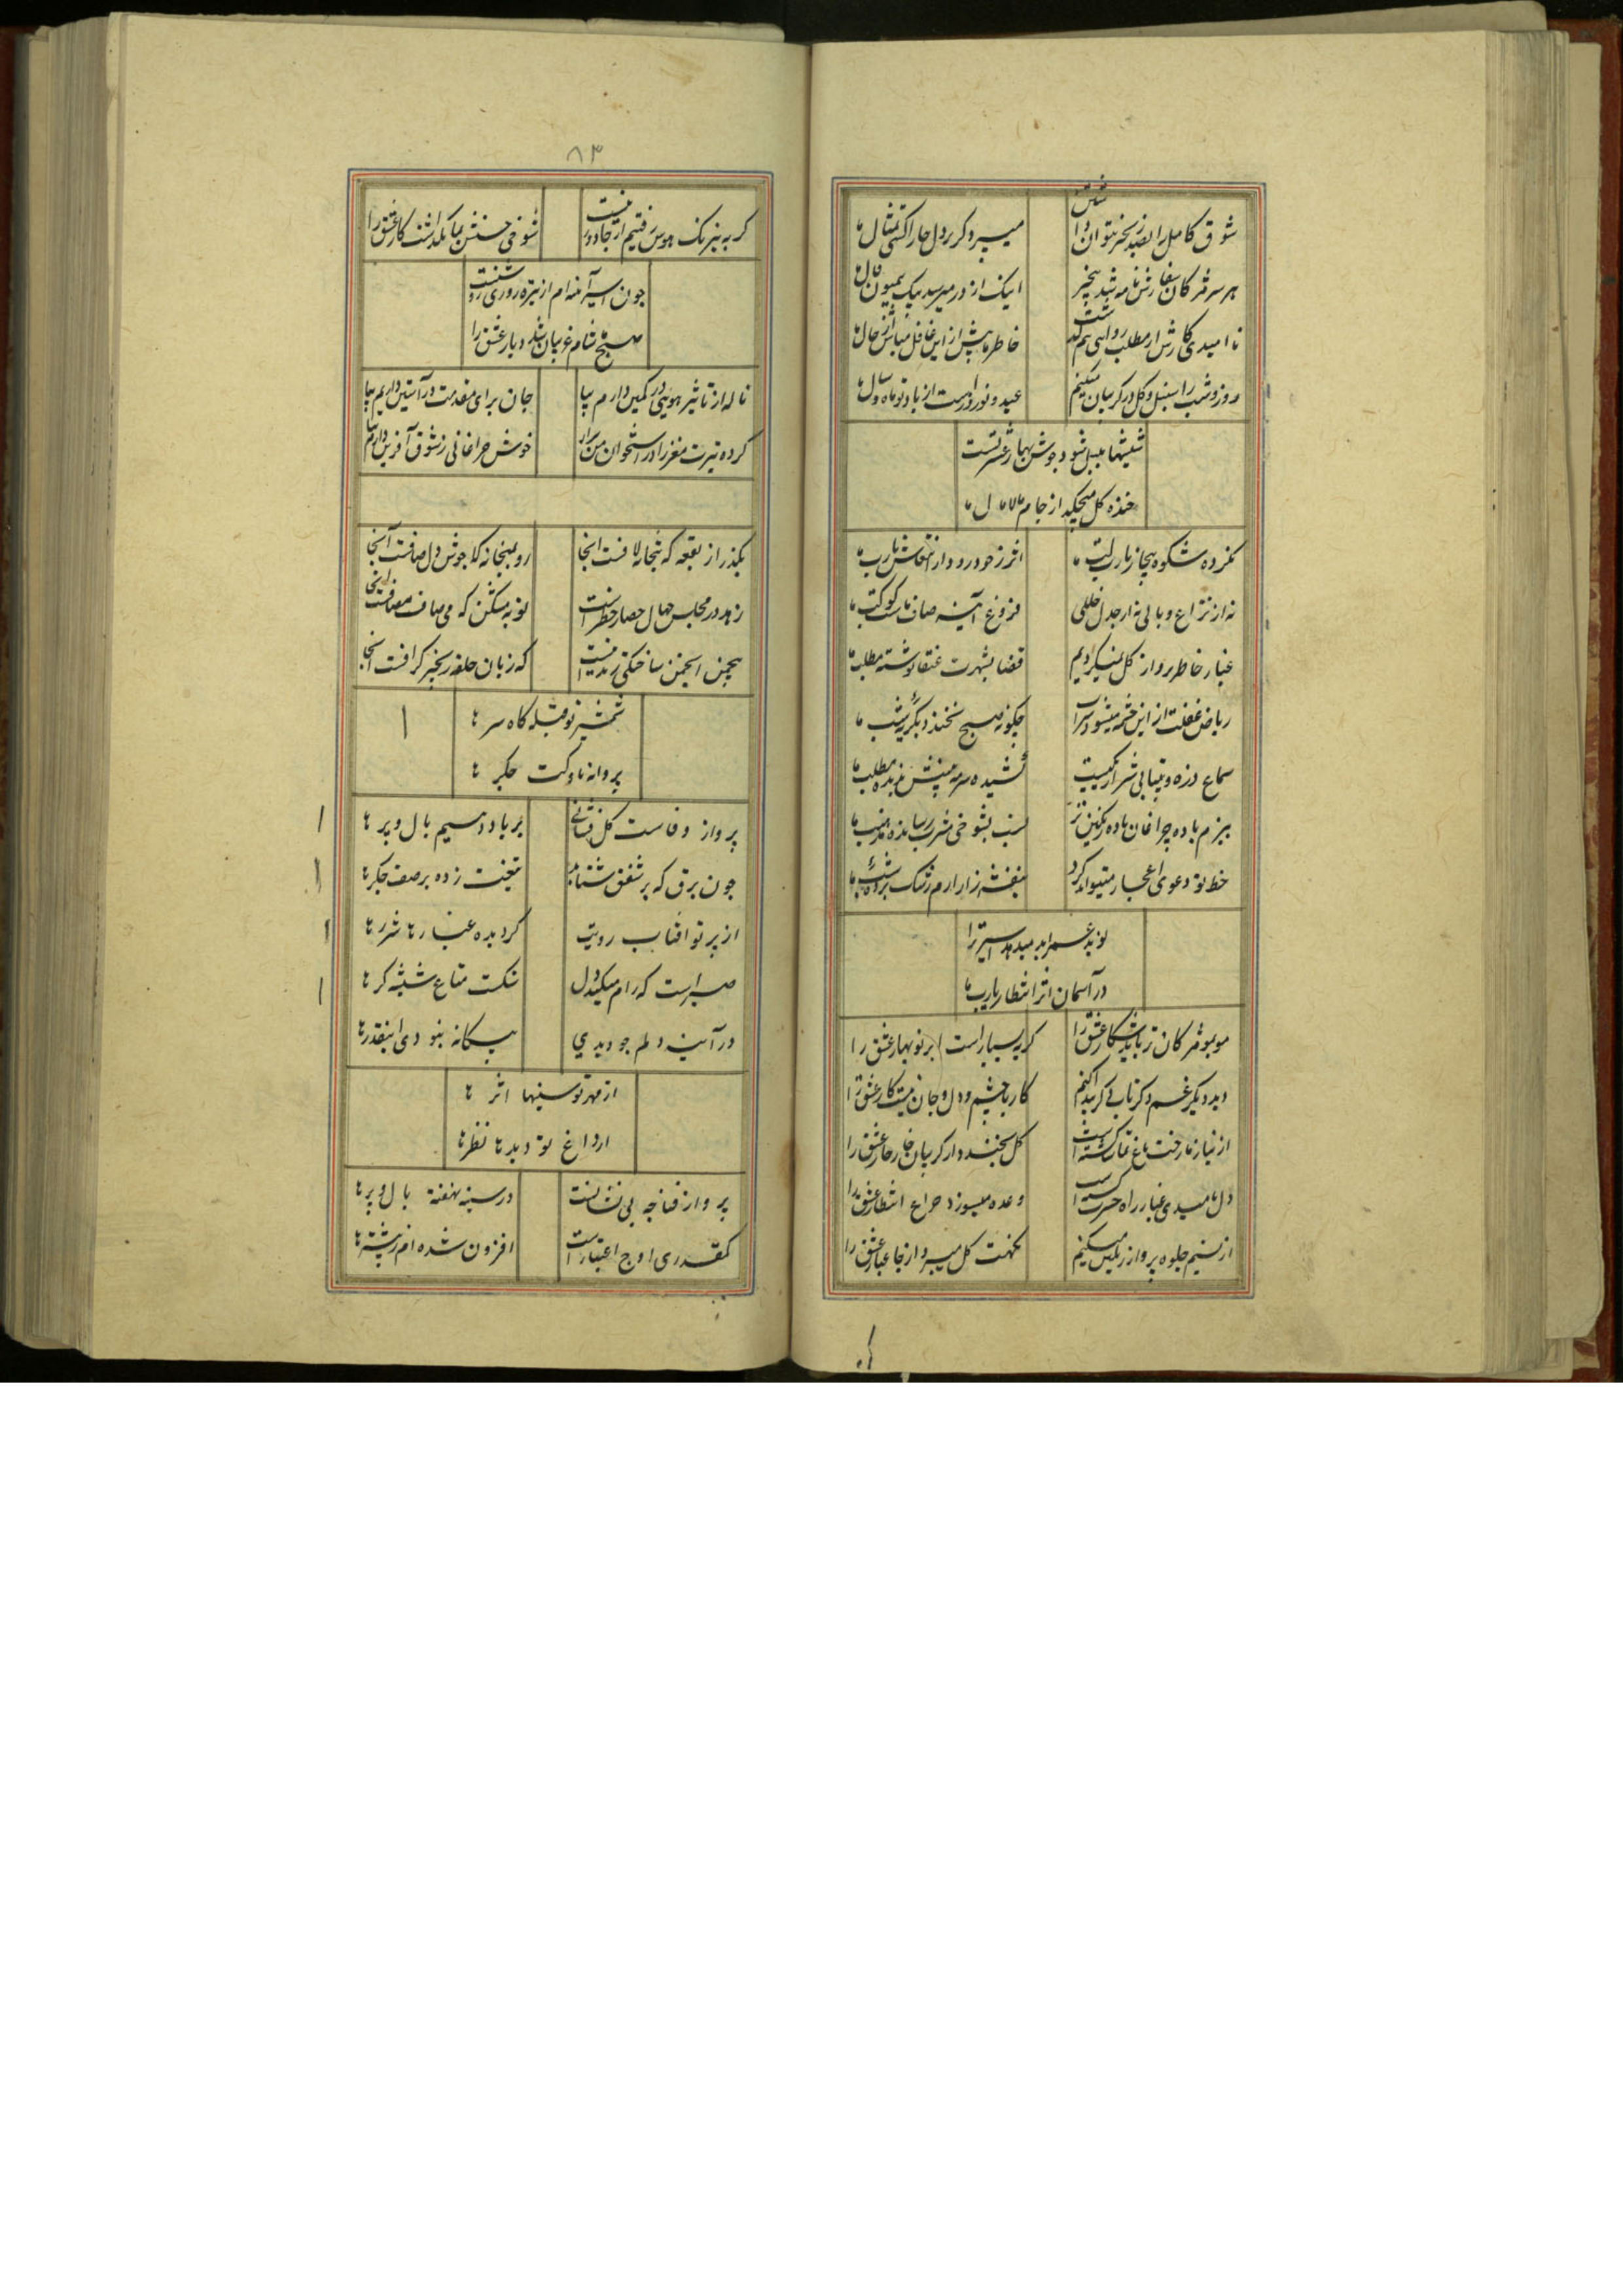 شوق کامل را بصد زنجیر نتوان داشتن
میرود کر در دل خارا کشی تمثال ما
هر سر مژکان سفارش نامه
اینک از در میرسد پیک همیون فال ما
نا امیدی کارش از مطلب روایی هم کذشت
خاطر ما پیش از این غافل مباش از حال ما
روز و شب را سنبل و کل در کریبان میکنیم
عید و نوروز است از یاد تو ماه و سال ما
جوش بهار عشرتست
خنده کل میچکد از جام مالامال ما
نکرده شکوه بیجا ز یار لب ما
اثر ز خود رود از انتعاش یارب ما
نه از نزاع وبالی نه از جدل خللی
فروغ آینه صاف است کوکب ما
غبار خاطر پرواز کل نمیکردیم
قضا بشهرت عنقا نوشته مطلب ما
ریاض غفلت از این چشمه میشود سیراب
چکونه صبح نخندد بکریه شب ما
سماع ذره و بیتابی شرار یکیست
کشیده سرمه بینش
ببزم باده چراغان باده رنکین تر
نسب بشوخی مشرب رسانده مذهب ما
خط تو دعوی اعجاز میتواند کرد
بنفشه زار ارم رشک برده
نوید عمر ابد میدهد اسیر ترا
در آسمان اثر انتظار یارب ما
موبمو مژکان تر باید شکار عشق را
کریه بسیار است ابر نوبهار عشق را
دید دیکر غم دکر تا بی
کار با چشم و دل و جان نیست کار عشق را
از نیاز ما رخت باغ
کل بخندد از کریبان خار خار عشق را
دل نامیدی غبار راه حسرت
وعده میسوزد چراغ انتظار عشق را
از نسیم جلوه پرواز رنکین میکنیم
نکهت کل میبرد از جا غبار عشق را
۸۳
کر به نیرنک هوس رفتیم از جا دور نیست
شوخی حسنش بما نکذاشت کار عشق را
چون اسیر آمده ام از تیره روزی
صبح شام غریبان شد دیار عشق را
ناله از تاثیر در کمین دارم بیا
جان برای مقدمت در آستین دارم بیا
کرده تیرت مغز را در استخوان من
خوش چراغانی ز شوق آفرین دارم بیا
بکذر از بقعه که بتخانه لافست انجا
رو بمیخانه که جوش دل صافست آنجا
زاهد در مجلس جهال حصار خطر است
توبه بشکن که می صاف معافست انجا
بچمن انجمن ساختکی زندانیست
که زبان حلقه زنجیر کزافست انجا
شمشیر تو قبله کاه سر ها
پروانه ناوکت جکر ها
پرواز وفاست کل فشانی
بر باد دهیم بال و پر ها
چون برق که بر شفق شتابد
تیغت زده بر صف جکر ها
از پرتو آفتاب رویت
کردیده غبار ها شرر ها
صبر است که رام میکند دل
شکست متاع شیشه کر ها
در آینه دلم چو دیدی
بیکانه نبودی اینقدر ها
از مهر تو سینها اثر ها
از داغ تو دیده ها نظر ها
پرواز فنا چه بی نشانست
در سینه نهفته بال و پر ها
کمقدری اوج اعتبار است
افزون شده ام ز پیشتر ها